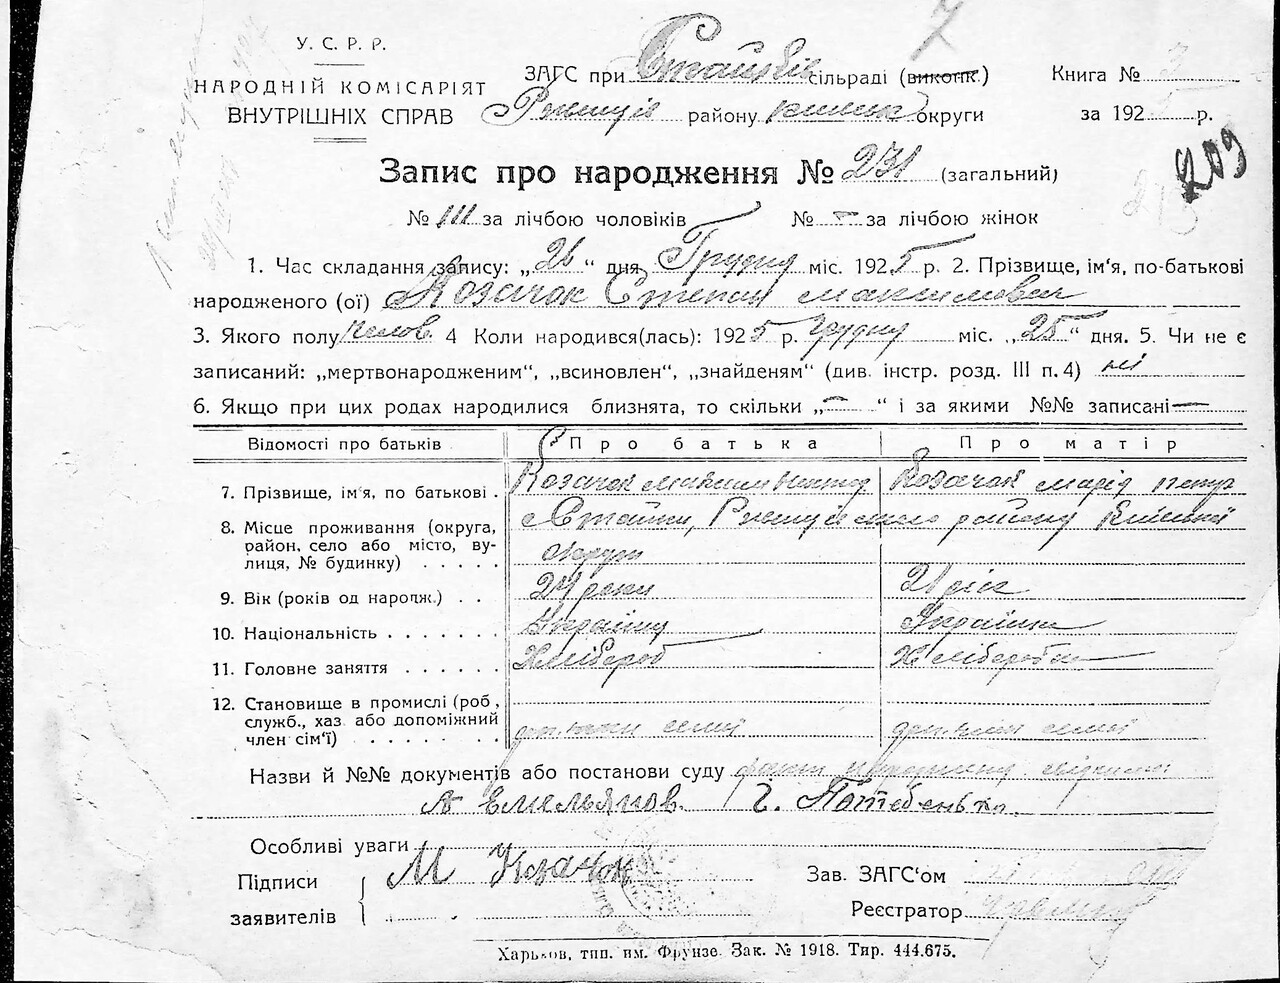 У. С. Р. Р.
НАРОДНІЙ КОМІСАРІЯТ
ВНУТРІШНІХ СПРАВ
7
ЗАГС при Стайків сільраді (виконк.)
Ржищів району округи
Книга № 3
за 1925 р.
209
213
Запис про народження № 231 (загальний)
№ 111 за лічбою чоловіків № – за лічбою жінок
1. Час складання запису: „26“ дня Грудня міс. 1925 р. 2. Прізвище, ім'я, по-батькові
народженого (ої) Козачок Степан Максимович
3. Якого полу челов. 4 Коли народився(лась): 1925 р. Грудня міс. „25“ дня. 5. Чи не є
записаний: „мертвонародженим“, „всиновлен“, „знайденям“ (див. інстр. розд. III п. 4) ні
6. Якщо при цих родах народилися близнята, то скільки „–“ і за якими №№ записані —
Відомості про батьків Про батька Про матір
7. Прізвище, ім'я, по батькові . Козачок Максим Козачок Марія Петр
8. Місце проживання (округа, район, село або місто, вулиця, № будинку) . . . . . с Стайки, району Київської
округи
9. Вік (років од народж.) . . 24 роки 21 рік
10. Національність . . . . . . . Українец Українка
11. Головне заняття . . . . . . Хлібороб Хліборобка
12. Становище в промислі (роб., служб., хаз або допоміжний член сім'ї) . . . . . . . . семії семії
Назви й №№ документів або постанови суду факт
А Емельянов. Г. Потебенько.
Особливі уваги
Підписи
заявителів
М Козачок
Зав. ЗАГС'ом
Реєстратор
Харьков, тип. им. Фрунзе. Зак. № 1918. Тир. 444.675.